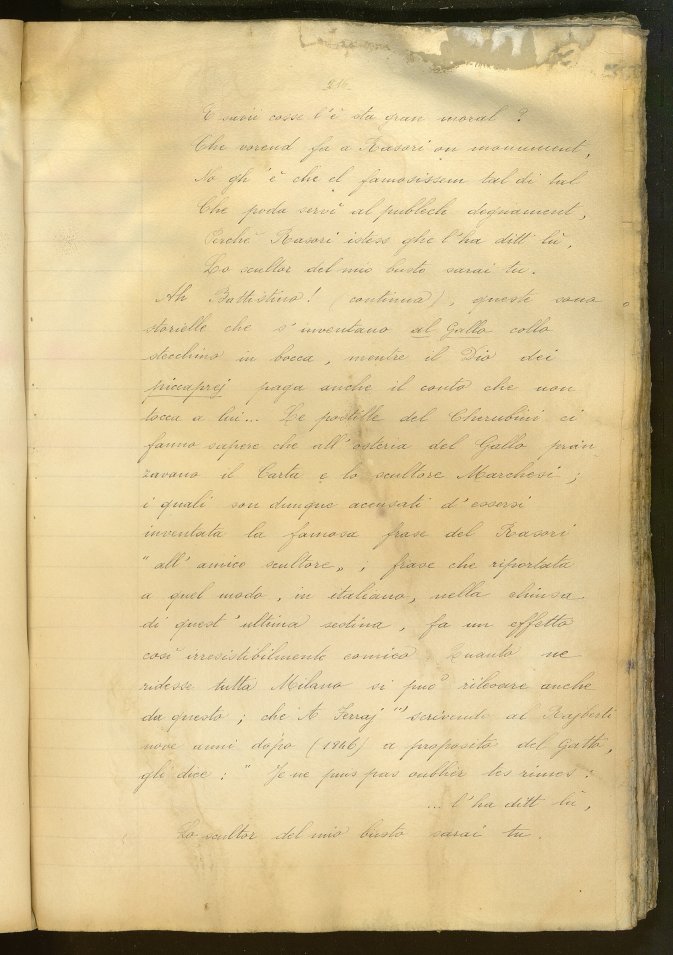 216
E savii cosse l'è sta gran moral ?
Che vorend fa a Rasori on monument,
No gh'è che el famosissem tal di tal
Che poda servì al publech degnament,
Perchè Rasori istess ghe l'ha ditt lù,
Lo scultor del mio busto sarai tu.
Ah Battistino! (continua), queste sono
storielle che s'inventano al Gallo collo
stecchino in bocca, mentre il Dio dei
piccaprej paga anche il conto che non
tocca a lui... Le postille del Cherubini ci
fanno sapere che all'osteria del Gallo pran-
zavano il Carta e lo scultore Marchesi ;
i quali son dunque accusati d'essersi
inventata la famosa frase del Rasori
"all'amico scultore" ; frase che riportata
a quel modo, in italiano, nella chiusa
di quest'ultima sestina, fa un effetto
così irresistibilmente comico. Quanto ne
ridesse tutta Milano si può rilevare anche
da questo ; che A Ferraj scrivendo al Rajberti
nove anni dopo (1846) a proposito del Gatto,
gli dice : "Je ne puis pas oublier tes rimes :
... l'ha ditt lù,
Lo scultor del mio busto sarai tu.